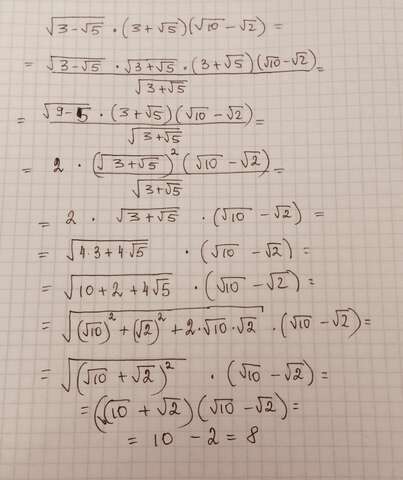 √(3-√5) · (3+√5)(√10-√2) =
= (√(3-√5) · √(3+√5) · (3+√5)(√10-√2)) / √(3+√5) =
= (√(9-5) · (3+√5)(√10-√2)) / √(3+√5) =
= 2 · ((√(3+√5))²(√10-√2)) / √(3+√5) =
= 2 · √(3+√5) · (√10-√2) =
= √(4·3+4√5) · (√10-√2) =
= √(10+2+4√5) · (√10-√2) =
= √((√10)²+(√2)²+2·√10·√2) · (√10-√2) =
= √((√10+√2)²) · (√10-√2) =
= (√10+√2)(√10-√2) =
= 10-2 = 8